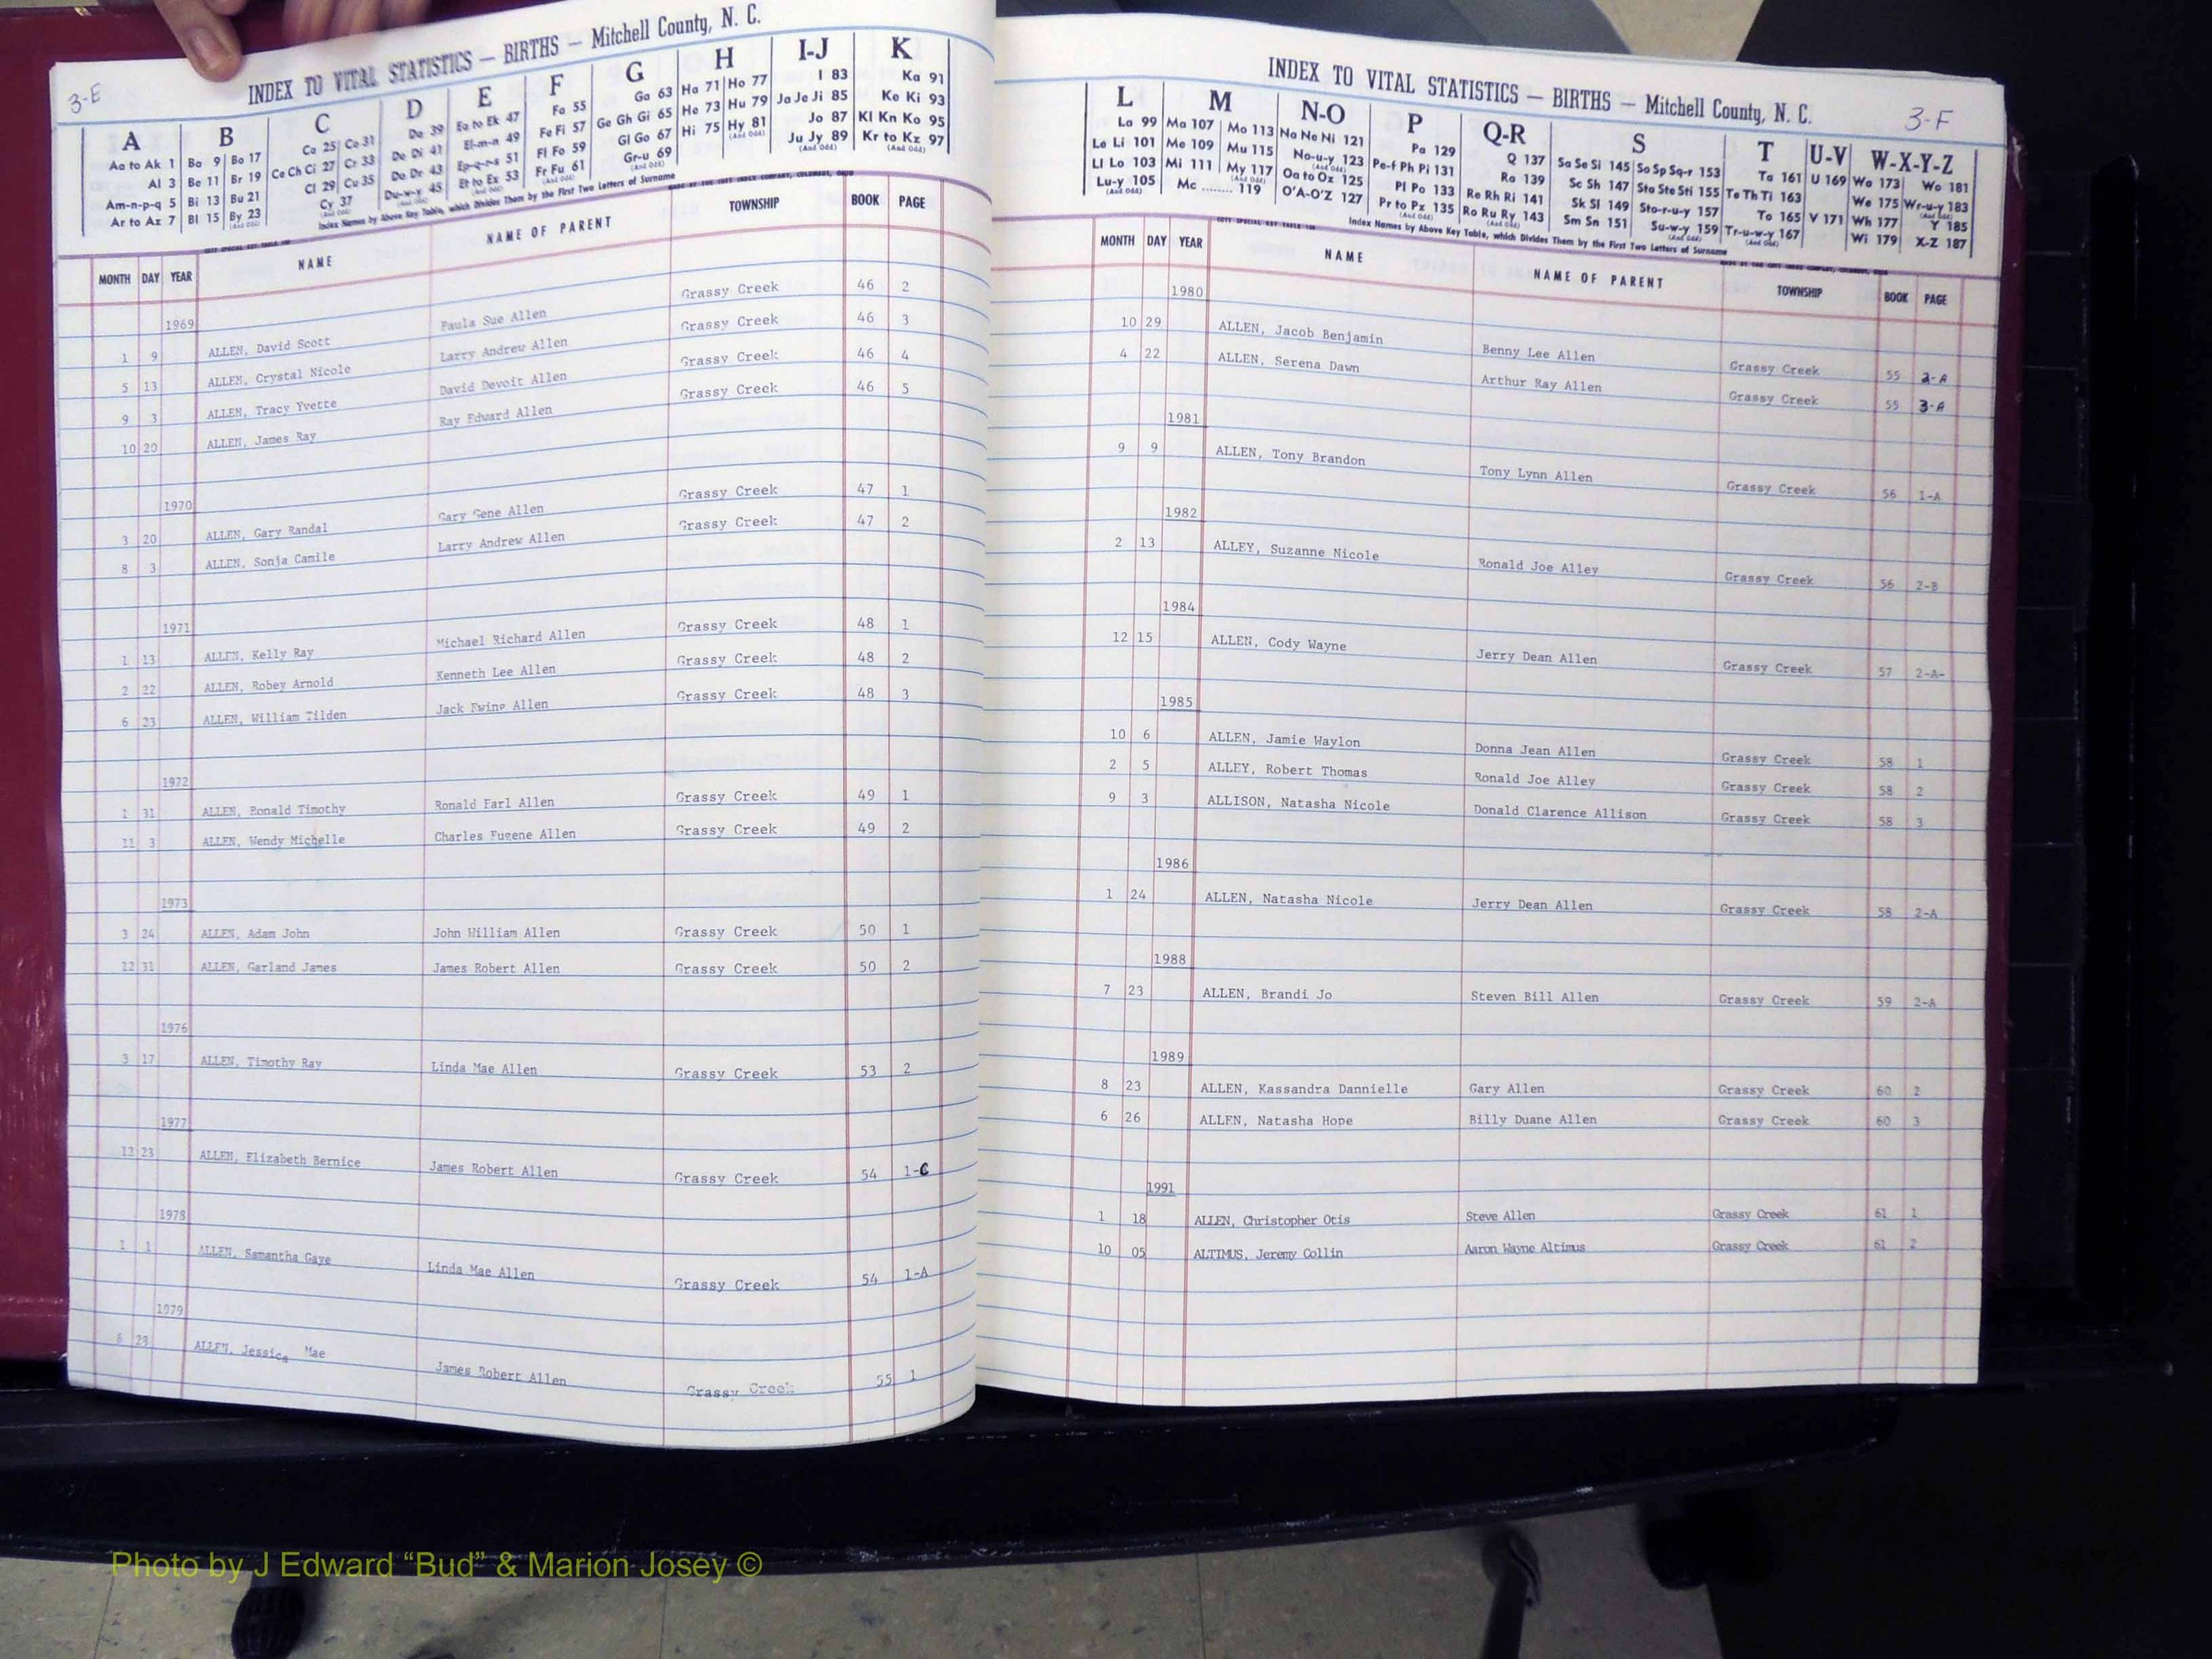 3-E
INDEX TO VITAL STATISTICS — BIRTHS — Mitchell County, N. C.
A B C D E F G H I-J K
Aa to Ak 1 Ba 9 Bo 17 Ca 25 Co 31 Da 39 Ea to Ek 47 Fa 55 Ga 63 Ha 71 Ho 77 I 83 Ka 91
Al 3 Be 11 Br 19 Ce Ch Ci 27 Cr 33 De Di 41 El-m-n 49 Fe Fi 57 Ge Gh Gi 65 He 73 Hu 79 Ja Je Ji 85 Ke Ki 93
Am-n-p-q 5 Bi 13 Bu 21 Cl 29 Cu 35 Do Dr 43 Ep-q-r-s 51 Fl Fo 59 Gl Go 67 Hi 75 Hy 81 Jo 87 Kl Kn Ko 95
Ar to Az 7 Bl 15 By 23 Cy 37 Du-w-y 45 Et to Ex 53 Fr Fu 61 Gr-u 69 Ju Jy 89 Kr to Kz 97
Index Names by Above Key Table, which Divides Them by the First Two Letters of Surname
MONTH DAY YEAR NAME NAME OF PARENT TOWNSHIP BOOK PAGE
1969
1 9 ALLEN, David Scott Paula Sue Allen Grassy Creek 46 2
5 13 ALLEN, Crystal Nicole Larry Andrew Allen Grassy Creek 46 3
9 3 ALLEN, Tracy Yvette David Devoit Allen Grassy Creek 46 4
10 20 ALLEN, James Ray Ray Edward Allen Grassy Creek 46 5
1970
3 20 ALLEN, Gary Randal Gary Gene Allen Grassy Creek 47 1
8 3 ALLEN, Sonja Camile Larry Andrew Allen Grassy Creek 47 2
1971
1 13 ALLEN, Kelly Ray Michael Richard Allen Grassy Creek 48 1
2 22 ALLEN, Robey Arnold Kenneth Lee Allen Grassy Creek 48 2
6 23 ALLEN, William Tilden Jack Ewing Allen Grassy Creek 48 3
1972
31 ALLEN, Ronald Timothy Ronald Earl Allen Grassy Creek 49 1
11 3 ALLEN, Wendy Michelle Charles Eugene Allen Grassy Creek 49 2
1973
3 24 ALLEN, Adam John John William Allen Grassy Creek 50 1
12 31 ALLEN, Garland James James Robert Allen Grassy Creek 50 2
1976
3 17 ALLEN, Timothy Ray Linda Mae Allen Grassy Creek 53 2
1977
12 23 ALLEN, Elizabeth Bernice James Robert Allen Grassy Creek 54 1-C
1978
1 1 ALLEN, Samantha Gaye Linda Mae Allen Grassy Creek 54 1-A
1979
6 28 ALLEN, Jessica Mae James Robert Allen Grassy Creek 55 1
INDEX TO VITAL STATISTICS — BIRTHS — Mitchell County, N. C.
3-F
L M N-O P Q-R S T U-V W-X-Y-Z
La 99 Ma 107 Mo 113 Na Ne Ni 121 Pa 129 Q 137 Sa Se Si 145 So Sp Sq-r 153 Ta 161 U 169 Wa 173 Wo 181
Le Li 101 Me 109 Mu 115 No-u-y 123 Pe-f Ph Pi 131 Ra 139 Sc Sh 147 Sta Ste Sti 155 Te Th Ti 163 We 175 Wr-u-y 183
Ll Lo 103 Mi 111 My 117 Oa to Oz 125 Pl Po 133 Re Rh Ri 141 Sk Sl 149 Sto-r-u-y 157 To 165 V 171 Wh 177 Y 185
Lu-y 105 Mc ........ 119 O'A-O'Z 127 Pr to Pz 135 Ro Ru Ry 143 Sm Sn 151 Su-w-y 159 Tr-u-w-y 167 Wi 179 X-Z 187
Index Names by Above Key Table, which Divides Them by the First Two Letters of Surname
MONTH DAY YEAR NAME NAME OF PARENT TOWNSHIP BOOK PAGE
1980
10 29 ALLEN, Jacob Benjamin Benny Lee Allen Grassy Creek 55 2-A
4 22 ALLEN, Serena Dawn Arthur Ray Allen Grassy Creek 55 3-A
1981
9 9 ALLEN, Tony Brandon Tony Lynn Allen Grassy Creek 56 1-A
1982
2 13 ALLEY, Suzanne Nicole Ronald Joe Alley Grassy Creek 56 2-B
1984
12 15 ALLEN, Cody Wayne Jerry Dean Allen Grassy Creek 57 2-A-
1985
10 6 ALLEN, Jamie Waylon Donna Jean Allen Grassy Creek 58 1
2 5 ALLEY, Robert Thomas Ronald Joe Alley Grassy Creek 58 2
9 3 ALLISON, Natasha Nicole Donald Clarence Allison Grassy Creek 58 3
1986
1 24 ALLEN, Natasha Nicole Jerry Dean Allen Grassy Creek 58 2-A
1988
7 23 ALLEN, Brandi Jo Steven Bill Allen Grassy Creek 59 2-A
1989
8 23 ALLEN, Kassandra Dannielle Gary Allen Grassy Creek 60 2
6 26 ALLEN, Natasha Hope Billy Duane Allen Grassy Creek 60 3
1991
1 18 ALLEN, Christopher Otis Steve Allen Grassy Creek 61 1
10 05 ALTIMUS, Jeremy Collin Aaron Wayne Altimus Grassy Creek 61 2
Photo by J Edward “Bud” & Marion Josey ©